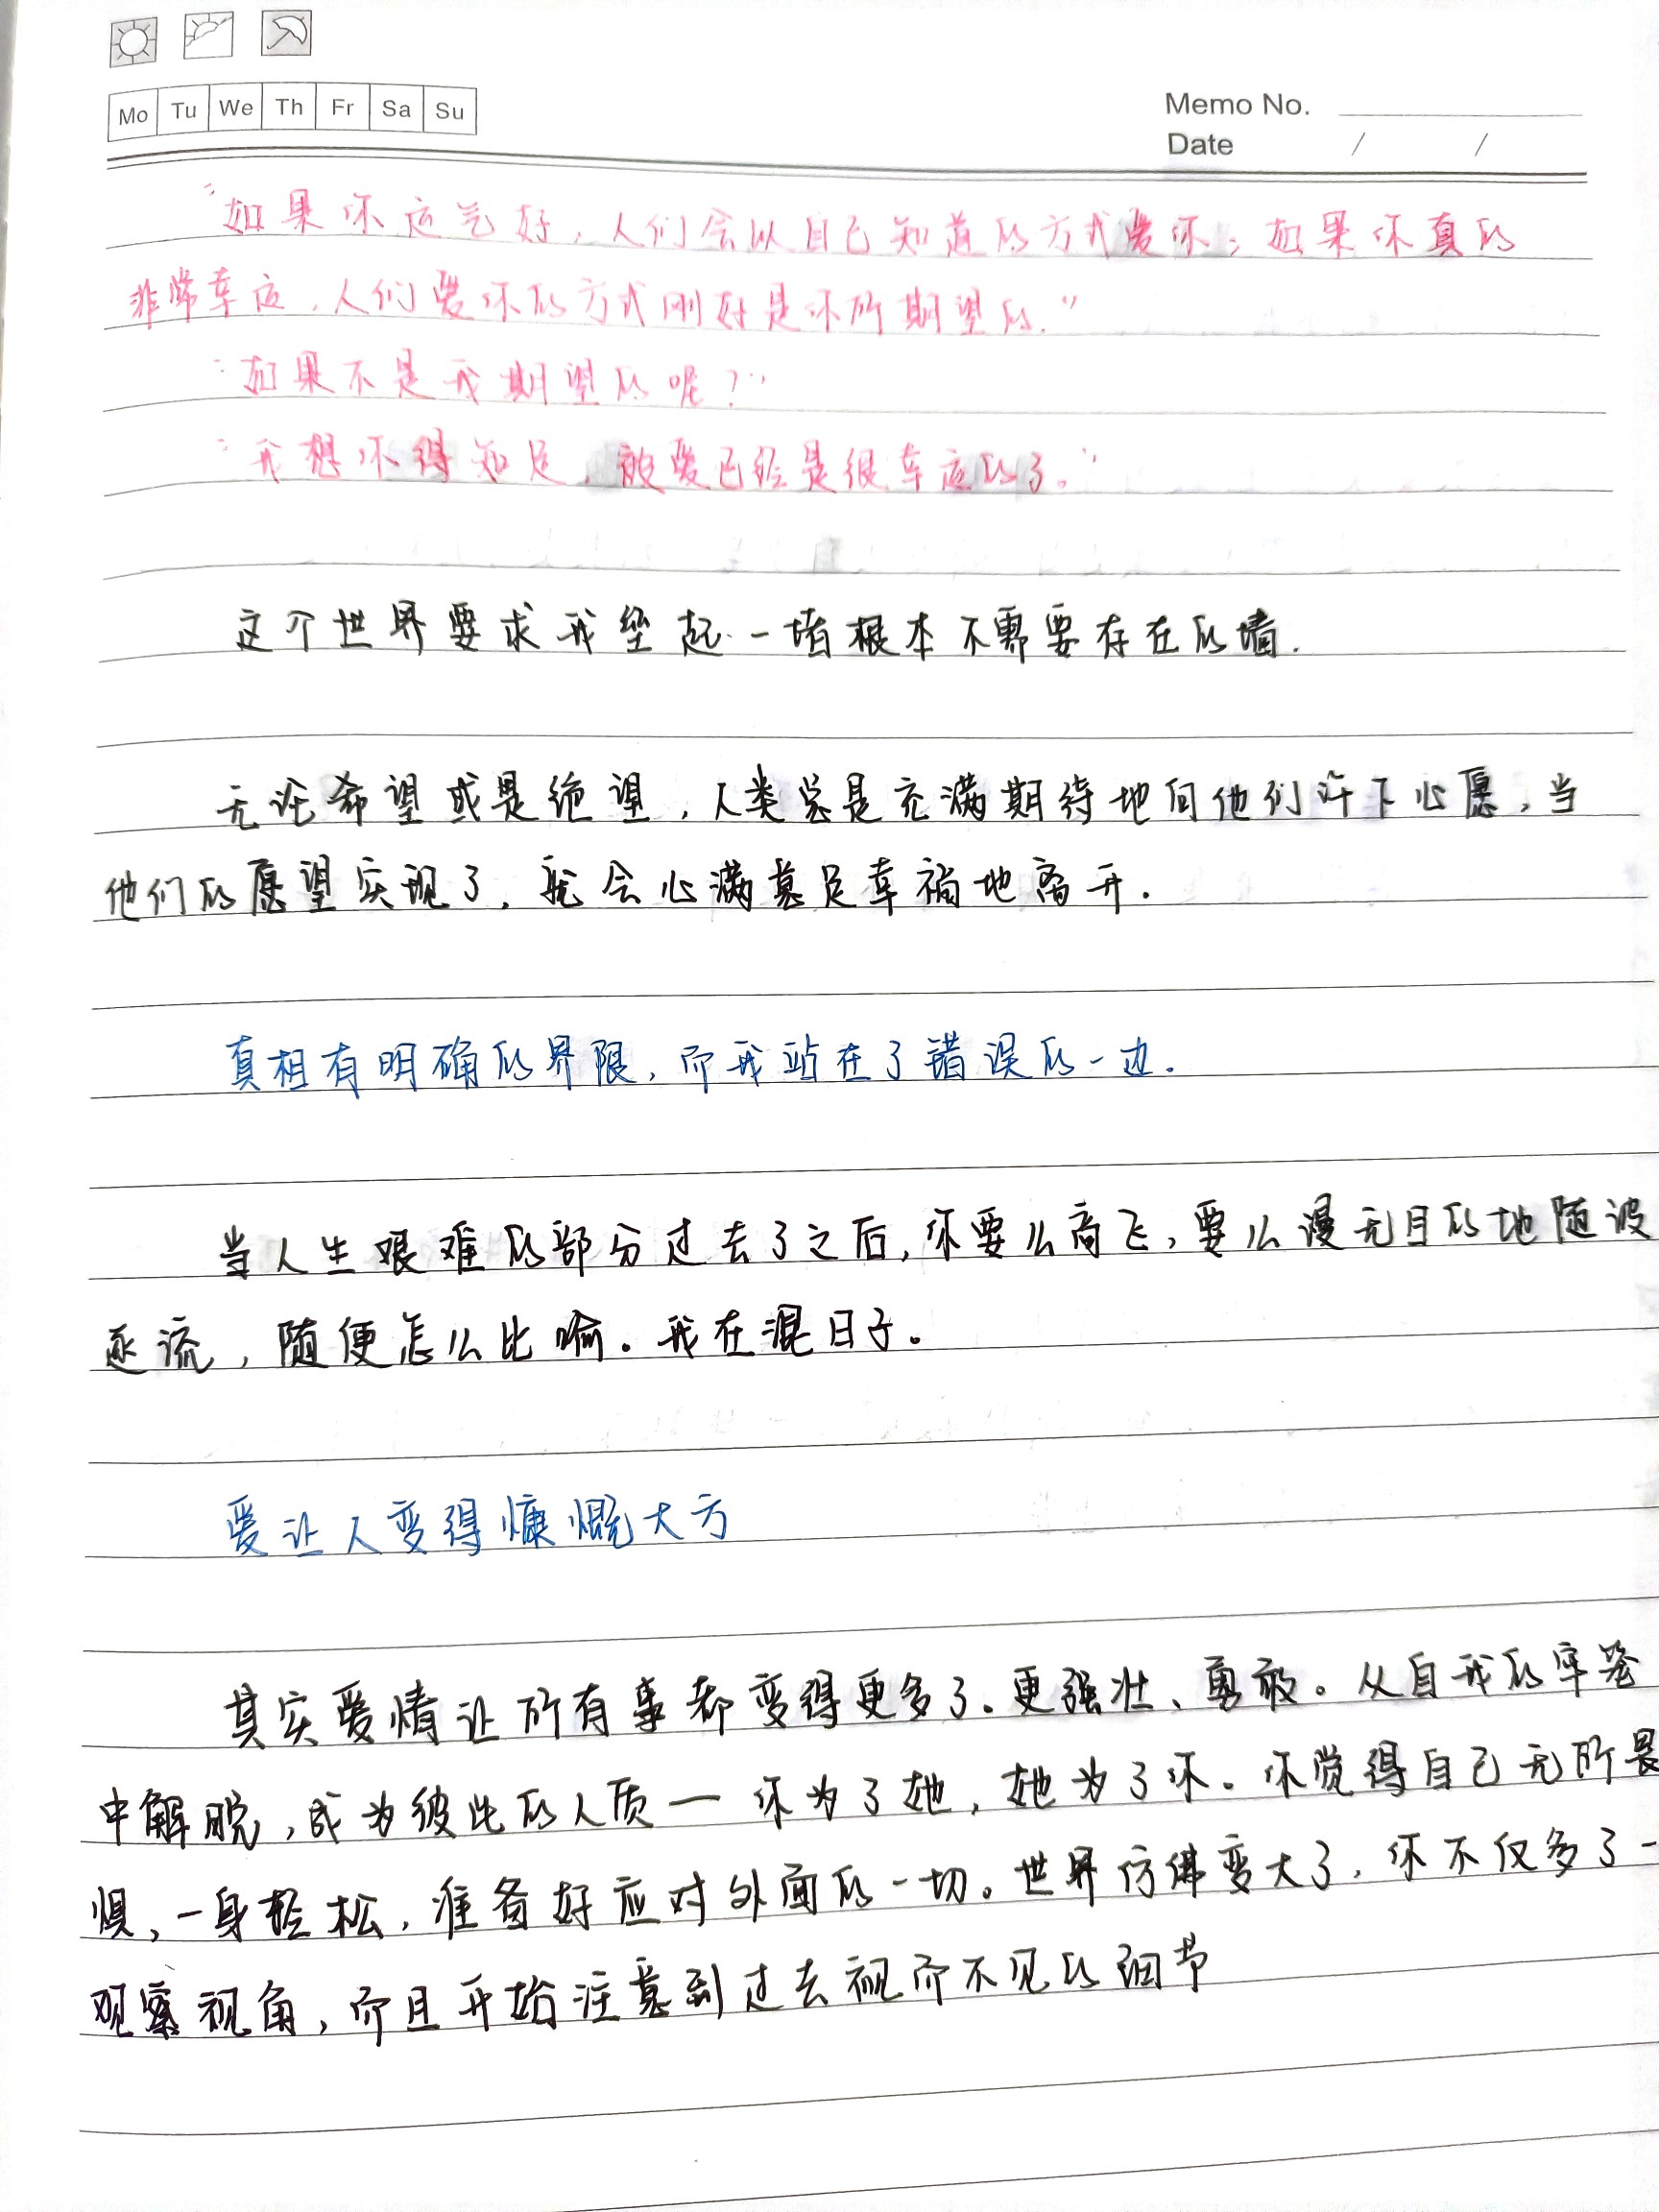 Mo Tu We Th Fr Sa Su
Memo No.
Date / /
"如果你运气好，人们会以自己知道的方式爱你；如果你真的
非常幸运，人们爱你的方式刚好是你所期望的."
"如果不是我期望的呢？"
"我想你得知足，被爱已经是很幸运的了。"
这个世界要求我垒起一堵根本不需要存在的墙.
无论希望或是绝望，人类总是充满期待地向他们许下心愿，当
他们的愿望实现了，就会心满意足幸福地离开.
真相有明确的界限，而我站在了错误的一边.
当人生艰难的部分过去了之后，你要么高飞，要么漫无目的地随波
逐流，随便怎么比喻。我在混日子。
爱让人变得慷慨大方
其实爱情让所有事都变得更多了。更强壮、勇敢。从自我的牢笼
中解脱，成为彼此的人质一你为了她，她为了你。你觉得自己无所畏
惧，一身轻松，准备好应对外面的一切。世界仿佛变大了，你不仅多了一
观察视角，而且开始注意到过去视而不见的细节